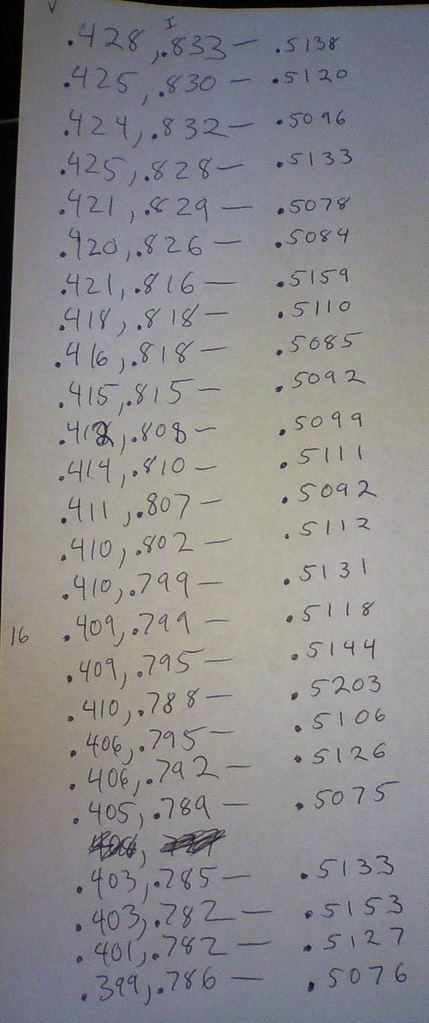 V I
.428, .833 — .5138
.425, .830 — .5120
.424, .832 — .5096
.425, .828 — .5133
.421, .829 — .5078
.420, .826 — .5084
.421, .816 — .5159
.418, .818 — .5110
.416, .818 — .5085
.415, .815 — .5092
.412, .808 — .5099
.414, .810 — .5111
.411, .807 — .5092
.410, .802 — .5112
.410, .799 — .5131
16 .409, .799 — .5118
.409, .795 — .5144
.410, .788 — .5203
.406, .795 — .5106
.406, .792 — .5126
.405, .789 — .5075
.403, .785 — .5133
.403, .782 — .5153
.401, .782 — .5127
.399, .786 — .5076